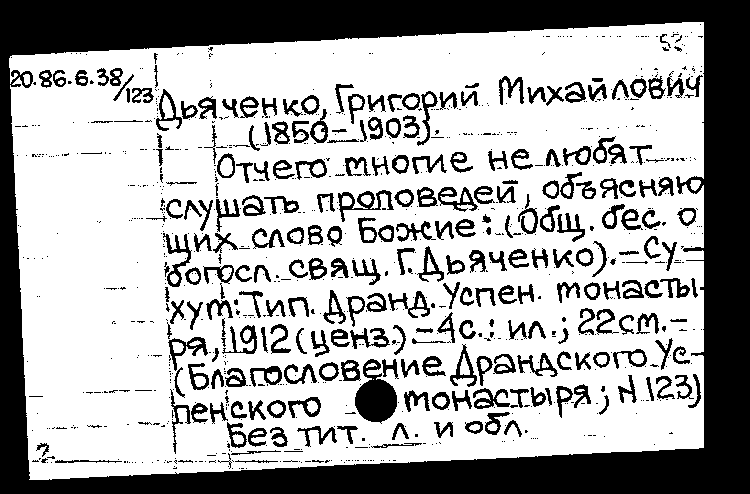 52
20.86.6.38/123
Дьяченко, Григорий Михайлович
(1850-1903).
Отчего многие не любят
слушать проповедей, объясняю
щих слово Божие: (Общ. бес. о
богосл. свящ. Г. Дьяченко).-Су-
хум: Тип. Дранд. Успен. монасты-
ря, 1912 (ценз.).-4с.: ил.; 22см.-
(Благословение Драндского Ус-
пенского монастыря; N 123)
Без тит. л. и обл.
2